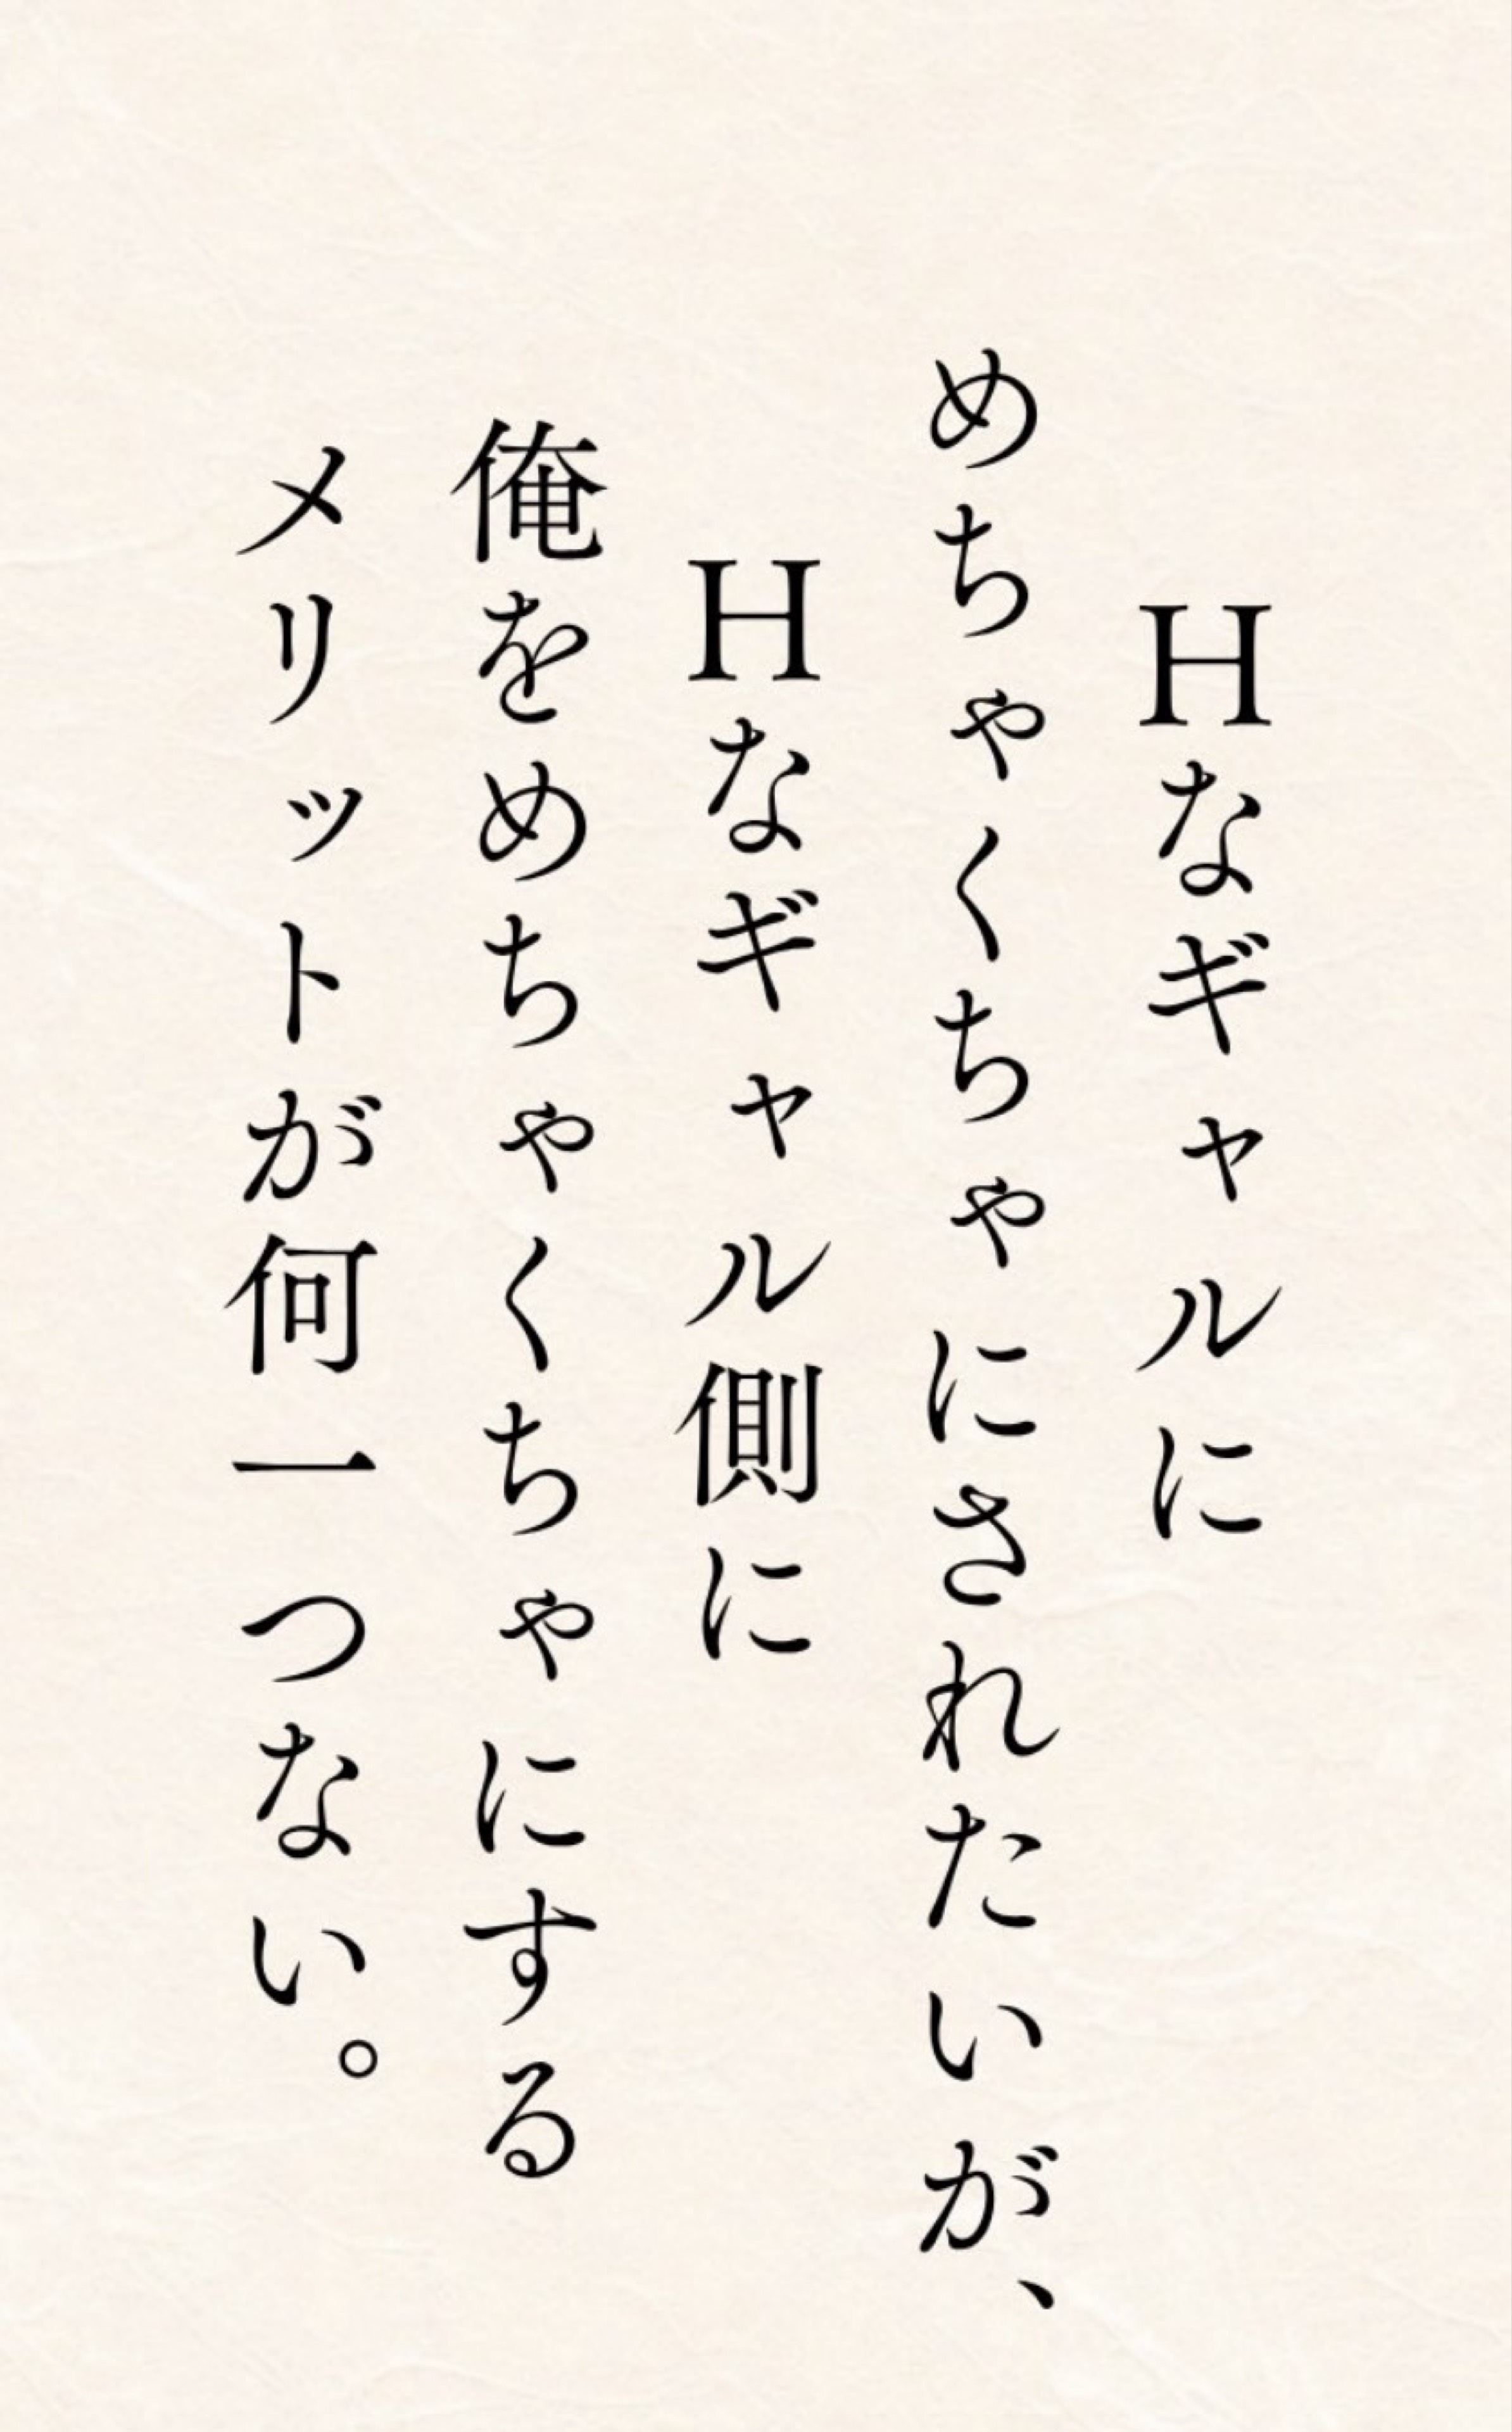 Hなギャルに
めちゃくちゃにされたいが、
Hなギャル側に
俺をめちゃくちゃにする
メリットが何一つない。